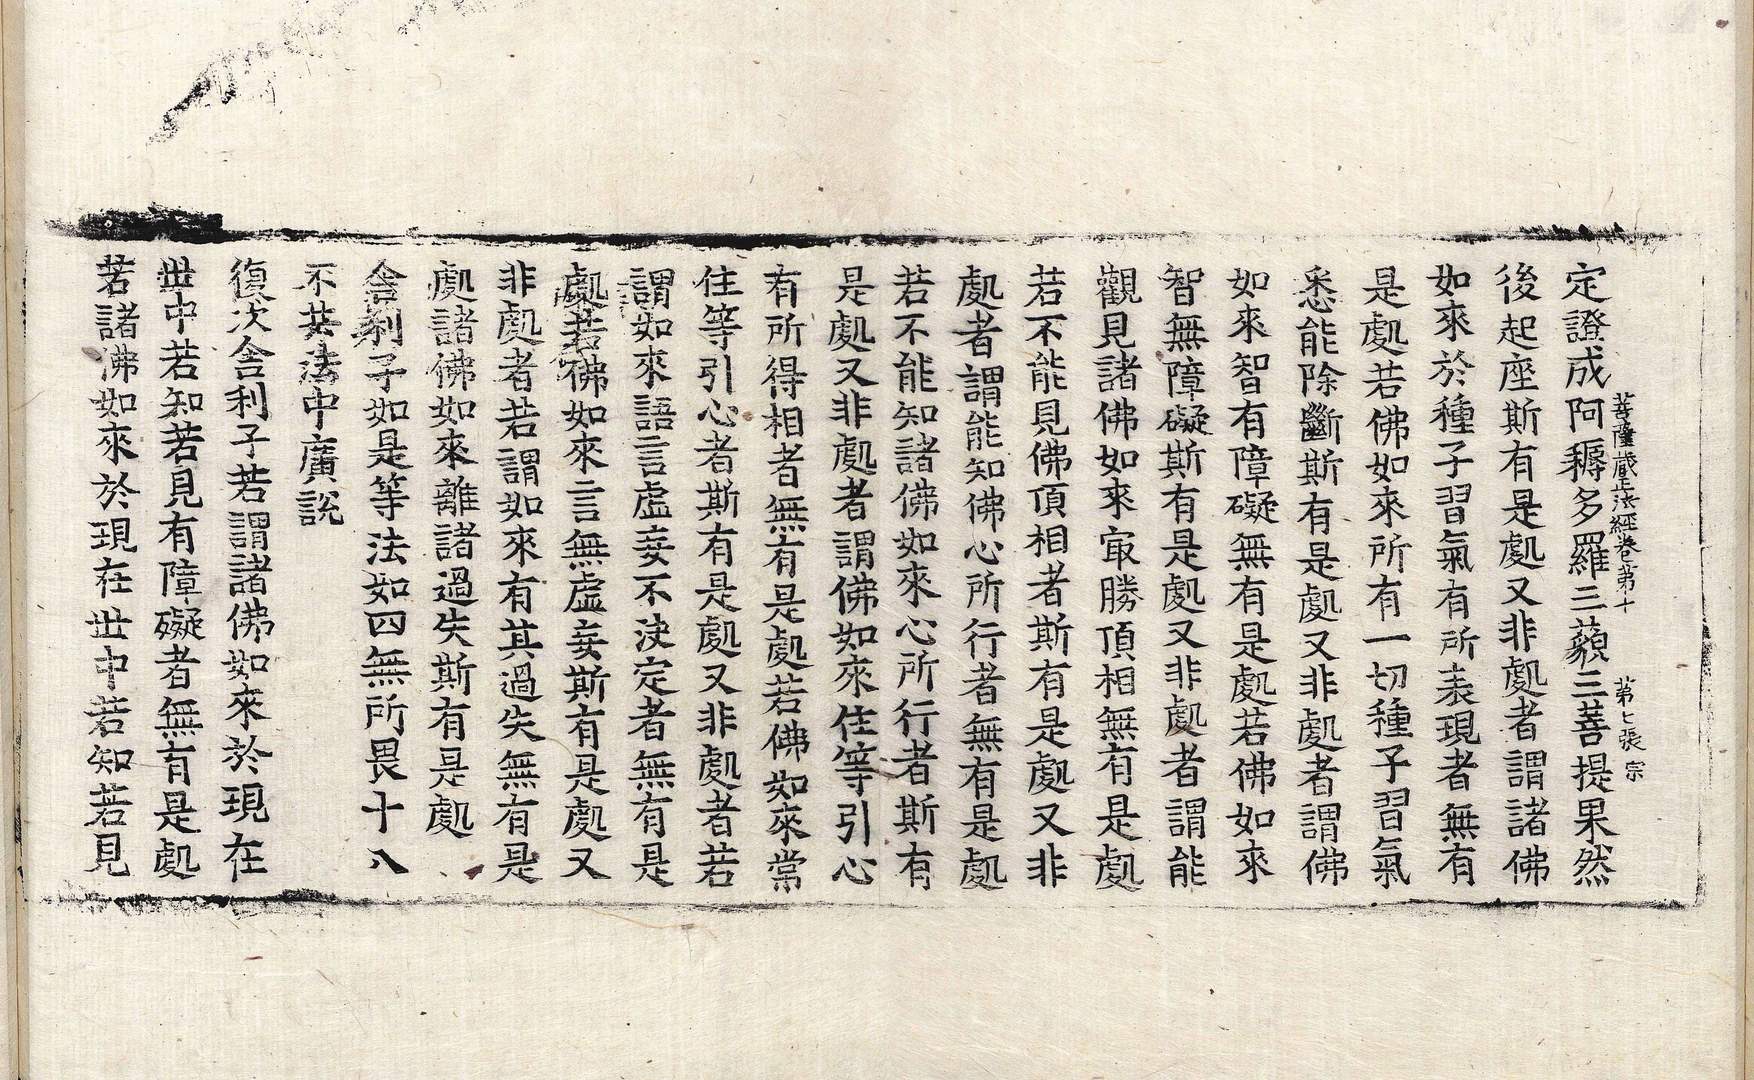 菩薩藏正法經卷第十　第七張　宗
定證成阿耨多羅三藐三菩提果然
後起座斯有是處又非處者謂諸佛
如來於種子習氣有所表現者無有
是處若佛如來所有一切種子習氣
悉能除斷斯有是處又非處者謂佛
如來智有障礙無有是處若佛如來
智無障礙斯有是處又非處者謂能
觀見諸佛如來㝡勝頂相無有是處
若不能見佛頂相者斯有是處又非
處者謂能知佛心所行者無有是處
若不能知諸佛如來心所行者斯有
是處又非處者謂佛如來住等引心
有所得相者無有是處若佛如來常
住等引心者斯有是處又非處者若
謂如來語言虛妄不決定者無有是
處若佛如來言無虛妄斯有是處又
非處者若謂如來有其過失無有是
處諸佛如來離諸過失斯有是處
舍利子如是等法如四無所畏十八
不共法中廣說
復次舍利子若謂諸佛如來於現在
世中若知若見有障礙者無有是處
若諸佛如來於現在世中若知若見